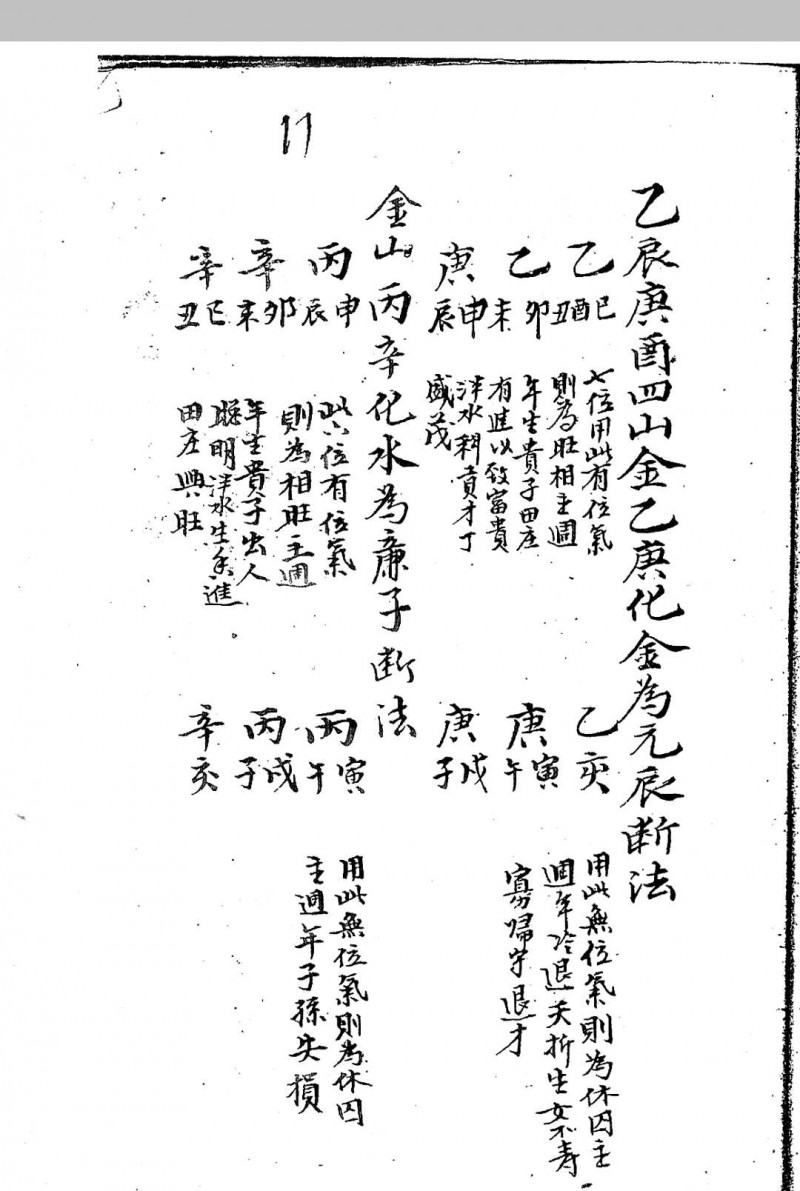 11
乙辰庚酉四山金乙庚化金為元辰断法
乙 巳酉丑
乙 卯未
庚 申辰
七位用此有位氣
則為旺相主週
年生貴子田庄
有進以致富貴
泮水科貢才丁
盛茂
乙 亥
庚 寅午
庚 戌子
用此無位氣則為休囚主
週年冷退夭折生女不寿
寡婦守退才
金山丙辛化水為廉子断法
丙 申辰
辛 卯未
辛 巳丑
此六位有位氣
則為相旺主週
年生貴子出人
聰明泮水生員進
田庄興旺
丙 寅午
丙 戌子
辛 亥
用此無位氣則為休囚
主週年子孫失損